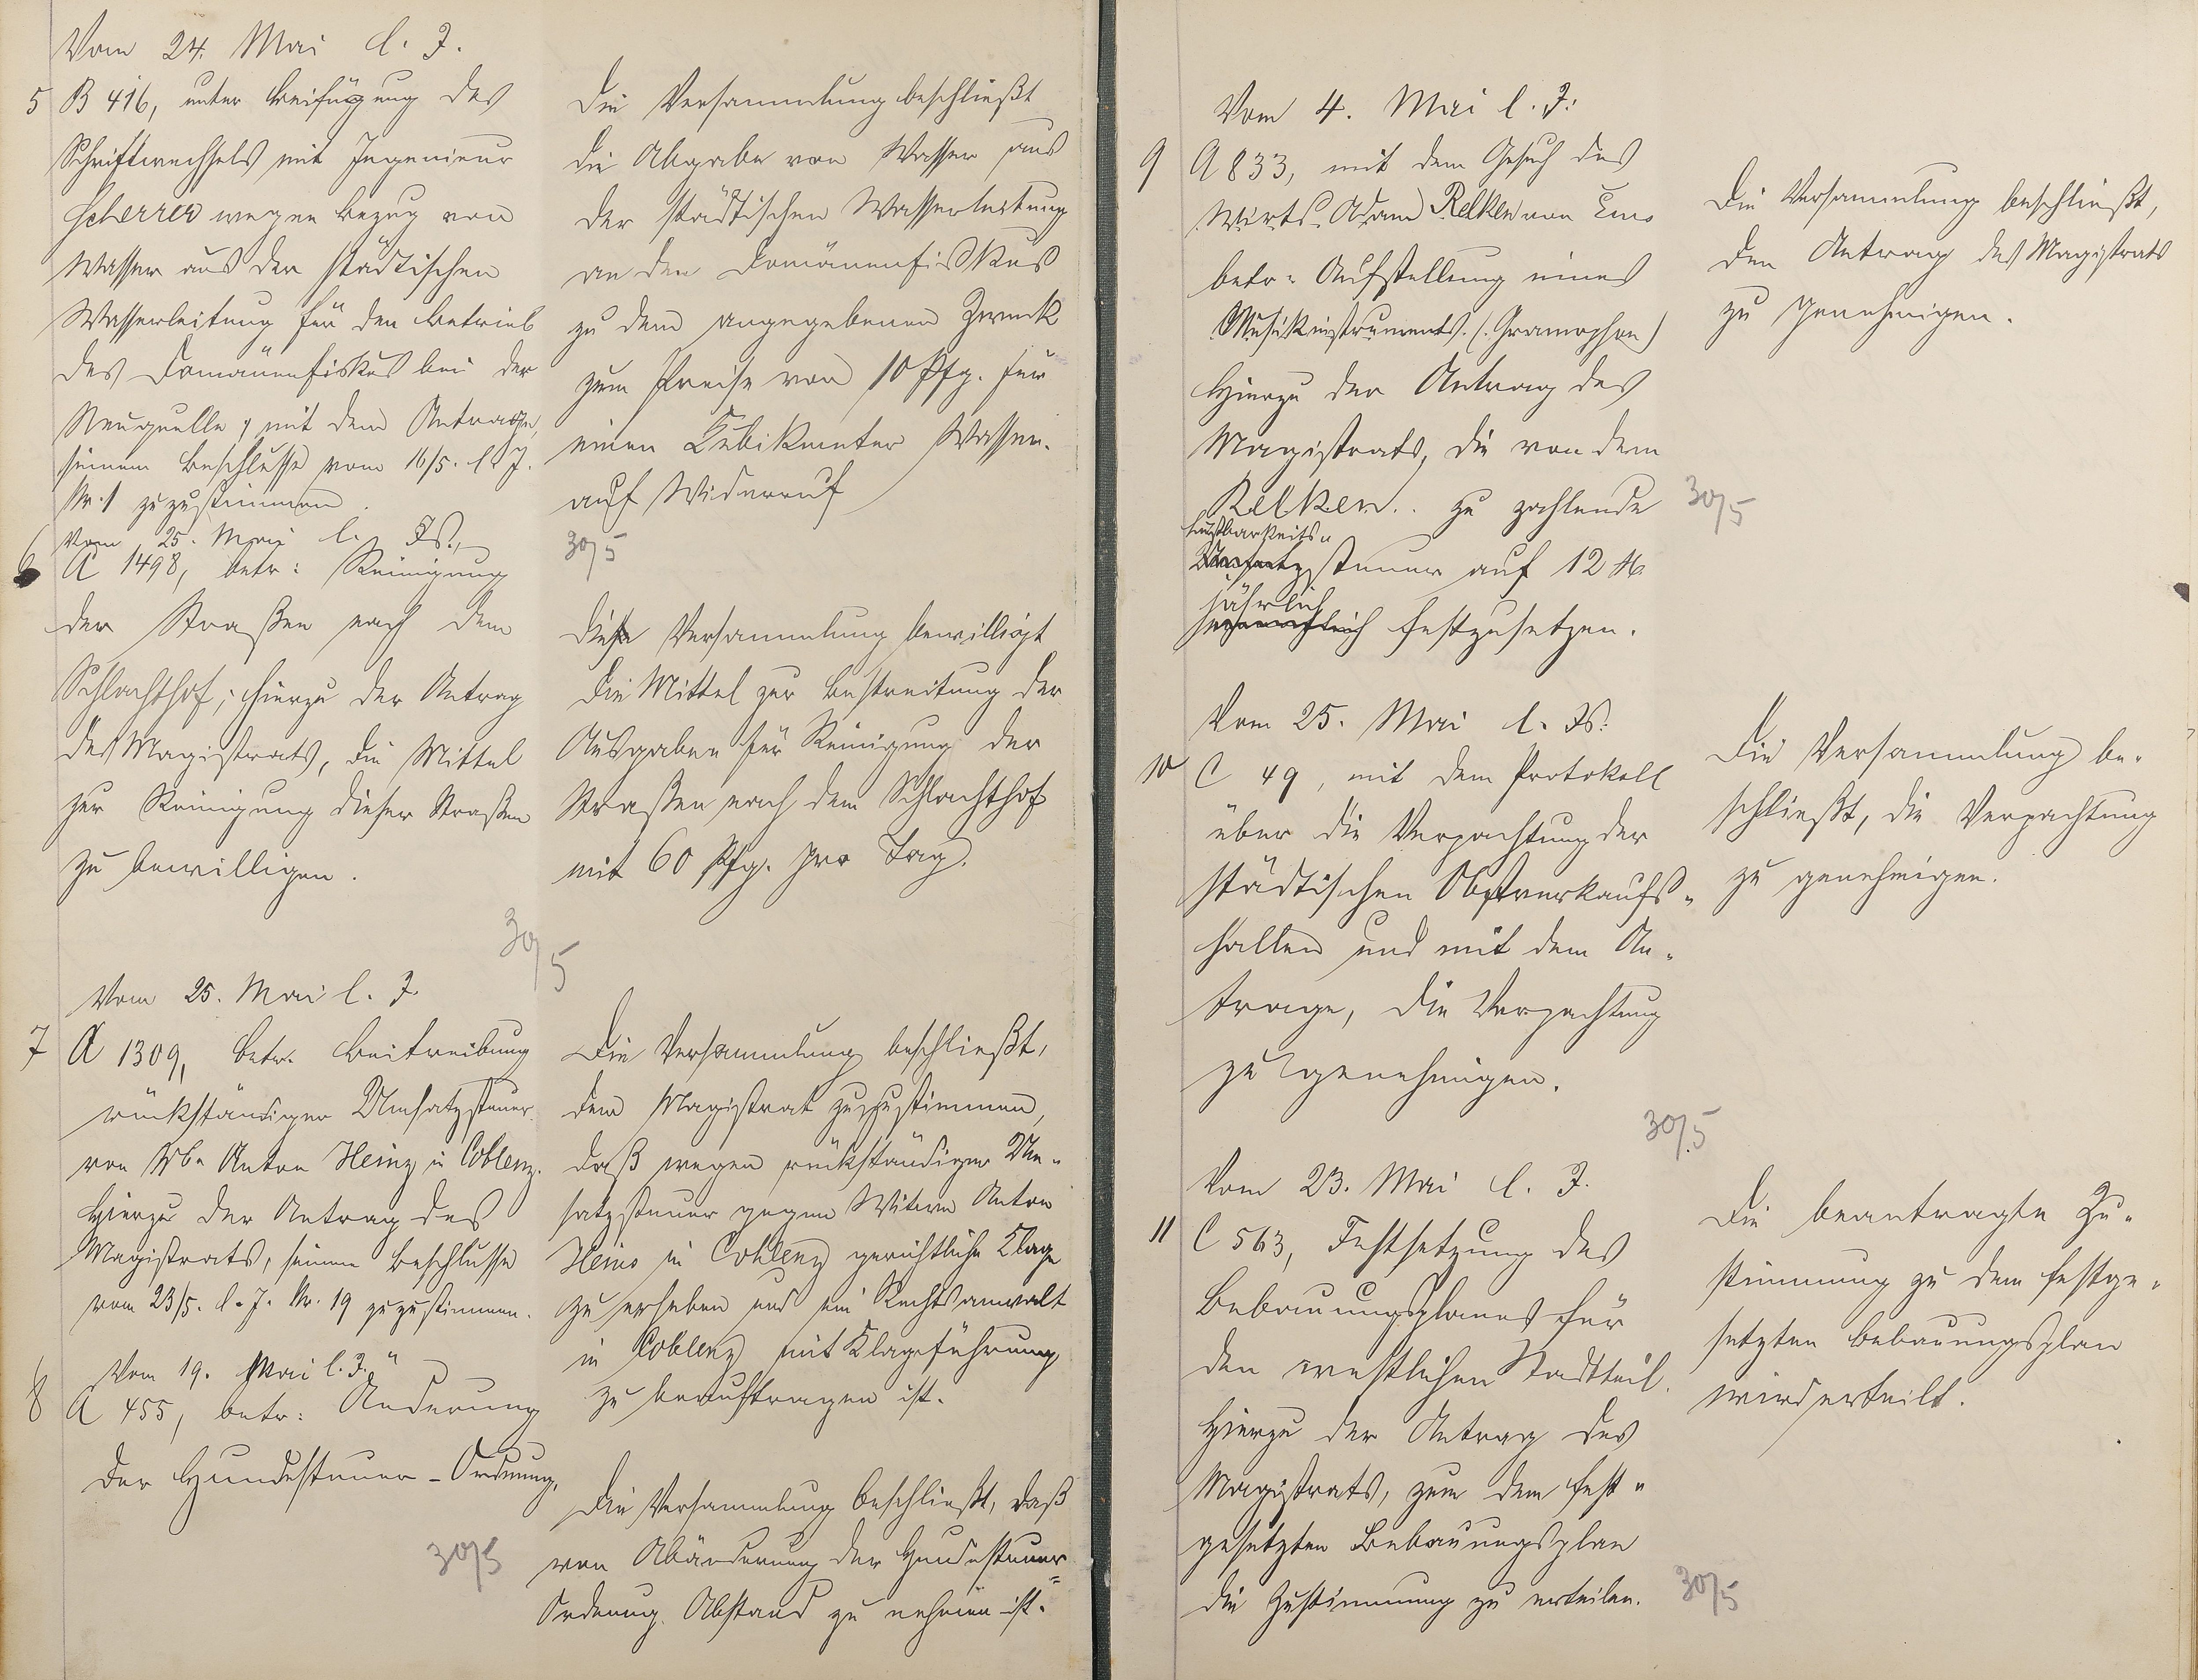 Vom 24. Mai l. J.
5 B 416, unter Beifügung des
Schriftwechsels mit Ingenieur
Scherrer wegen Bezug von
Wasser aus der städtischen
Wasserleitung für den Betrieb
des Domänenfiskus bei der
Neuquelle, mit dem Antrage,
seinem Beschlusse vom 16/5. l. J.
Nr. 1 zuzustimmen.
Die Versammlung beschließt
die Abgabe von Wasser aus
der städtischen Wasserleitung
an den Domänenfiskus
zu dem angegebenen Zweck
zum Preise von 10 Pfg. für
einen Kubikmeter Wasser
auf Widerruf
30/5
Vom 25. Mai l. Js.
6 A 1498, betr: Reinigung
der Straßen nach dem
Schlachthof; hierzu der Antrag
des Magistrats, die Mittel
zur Reinigung dieser Straßen
zu bewilligen.
Die Versammlung bewilligt
die Mittel zur Bestreitung der
Ausgaben für Reinigung der
Straßen nach dem Schlachthof
mit 60 Pfg. pro Tag.
30/5
Vom 25. Mai l. J.
7 A 1309, betr. Beitreibung
rückständiger Umsatzsteuer
von Wb. Anton Heinz in Coblenz.
Hierzu der Antrag des
Magistrats, seinem Beschlusse
vom 23/5. l. J. Nr. 19 zuzustimmen.
Die Versammlung beschließt,
dem Magistrat zuzustimmen,
daß wegen rückständiger Um-
satzsteuer gegen Witwe Anton
Heins in Coblenz gerichtliche Klage
zu erheben und ein Rechtsanwalt
in Coblenz mit Klageführung
zu beauftragen ist.
Vom 19. Mai l. J.
8 A 455, betr: Änderung
der Hundesteuer-Ordnung.
30/5
Die Versammlung beschließt, daß
von Abänderung der Hundesteuer=
Ordnung Abstand zu nehmen ist.
Vom 4. Mai l. J:
9 A 833, mit dem Gesuch des
Wirts Adam Relken von Ems
betr: Aufstellung eines
Musikinstruments. (Gramophon)
Hierzu der Antrag des
Magistrats, die von dem
Relken zu zahlende
Lustbarkeits-
Umsatzsteuer auf 12 M
jährlich
festzusetzen.
Die Versammlung beschließt,
den Antrag des Magistrats
zu genehmigen.
30/5
Vom 25. Mai l. Js:
10 C 49, mit dem Protokoll
über die Verpachtung der
städtischen Obstverkaufs-
hallen und mit dem An-
trage, die Verpachtung
zu genehmigen.
Die Versammlung be-
schließt, die Verpachtung
zu genehmigen.
30/5
Vom 23. Mai l. J.
11 C 563, Festsetzung des
Bebauungsplanes für
den westlichen Stadtteil.
Hierzu der Antrag des
Magistrats, zum dem fest-
gesetzten Bebauungsplan
die Zustimmung zu erteilen.
Die beantragte Zu-
stimmung zu dem festge-
setzten Bebauungsplan
wird erteilt.
30/5